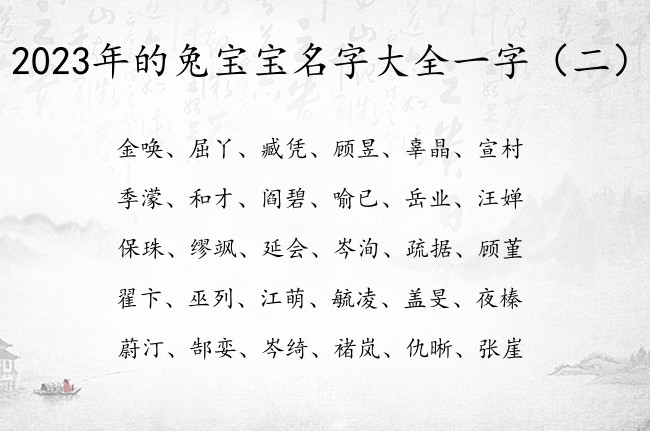 2023年的兔宝宝名字大全一字（二）
金唤、屈丫、臧凭、顾昱、辜晶、宣村
季濛、和才、阎碧、喻已、岳业、汪婵
保珠、缪飒、延会、岑洵、疏据、顾堇
翟卞、巫列、江萌、毓凌、盖旻、夜榛
蔚汀、郜娈、岑绮、褚岚、仇晰、张崖